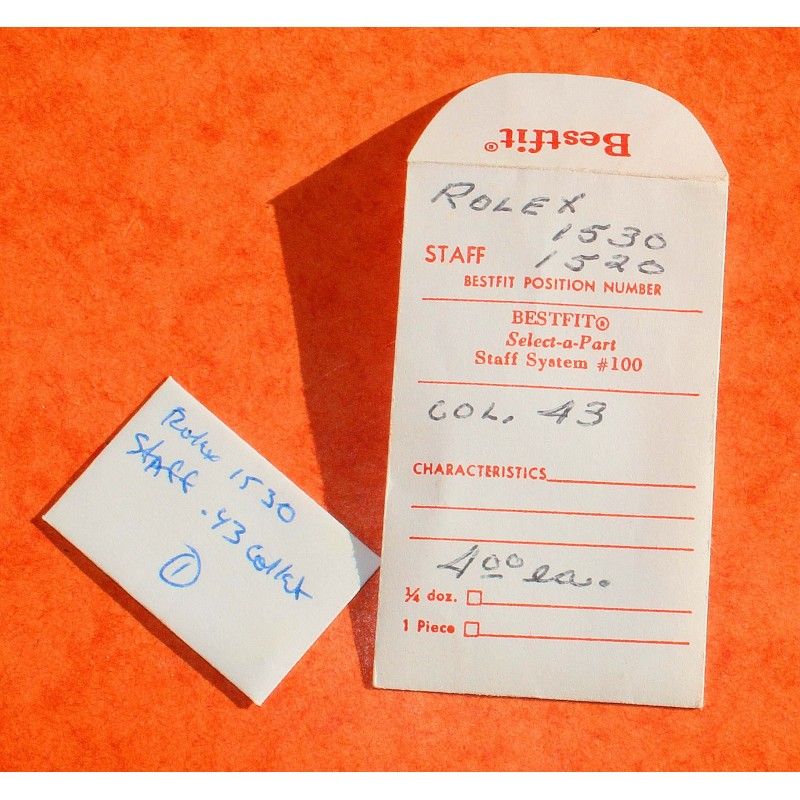 Bestfit®
ROLEX
1530
STAFF 1520
BESTFIT POSITION NUMBER
BESTFIT®
Select-a-Part
Staff System #100
COL. 43
CHARACTERISTICS
4.00 ea.
¼ doz.
1 Piece
Rolex 1530
Staff .43 collet
1